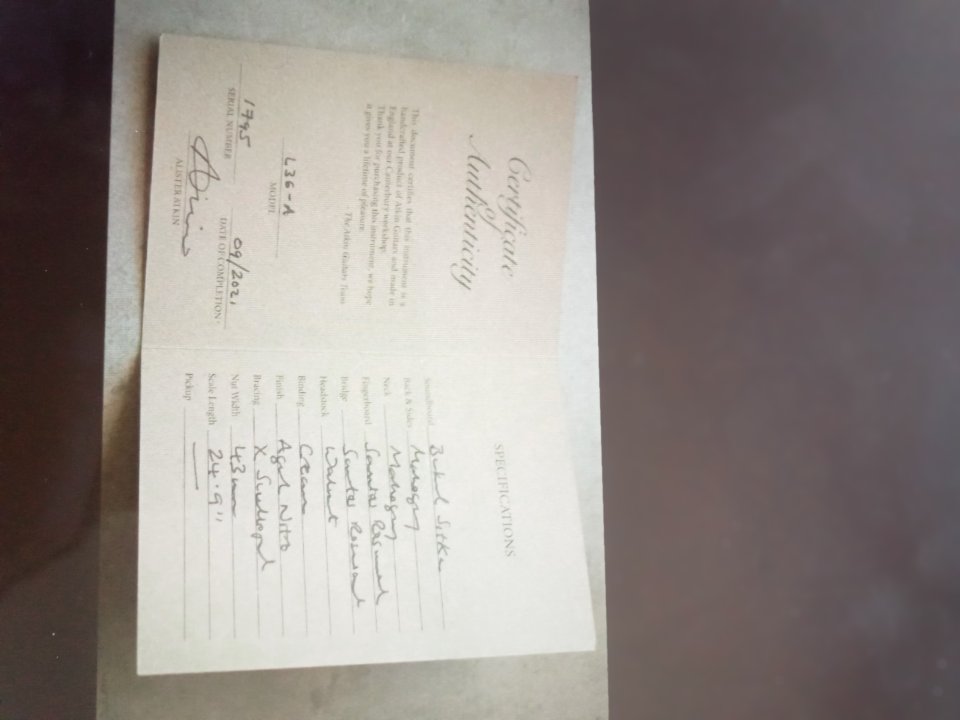 Certificate
of
Authenticity
This document certifies that this instrument is a
handcrafted product of Atkin Guitars and made in
England at our Canterbury workshop.
Thank you for purchasing this instrument, we hope
it gives you a lifetime of pleasure.
- The Atkin Guitars Team
L36-A
MODEL
1795
SERIAL NUMBER
09/2021
DATE OF COMPLETION
ALISTER ATKIN
SPECIFICATIONS
Soundboard Baked Sitka
Back & Sides Mahogany
Neck Mahogany
Fingerboard Rosewood
Bridge Rosewood
Headstock Walnut
Binding Cream
Finish Aged Nitro
Bracing X Scalloped
Nut Width 43mm
Scale Length 24.9"
Pickup —